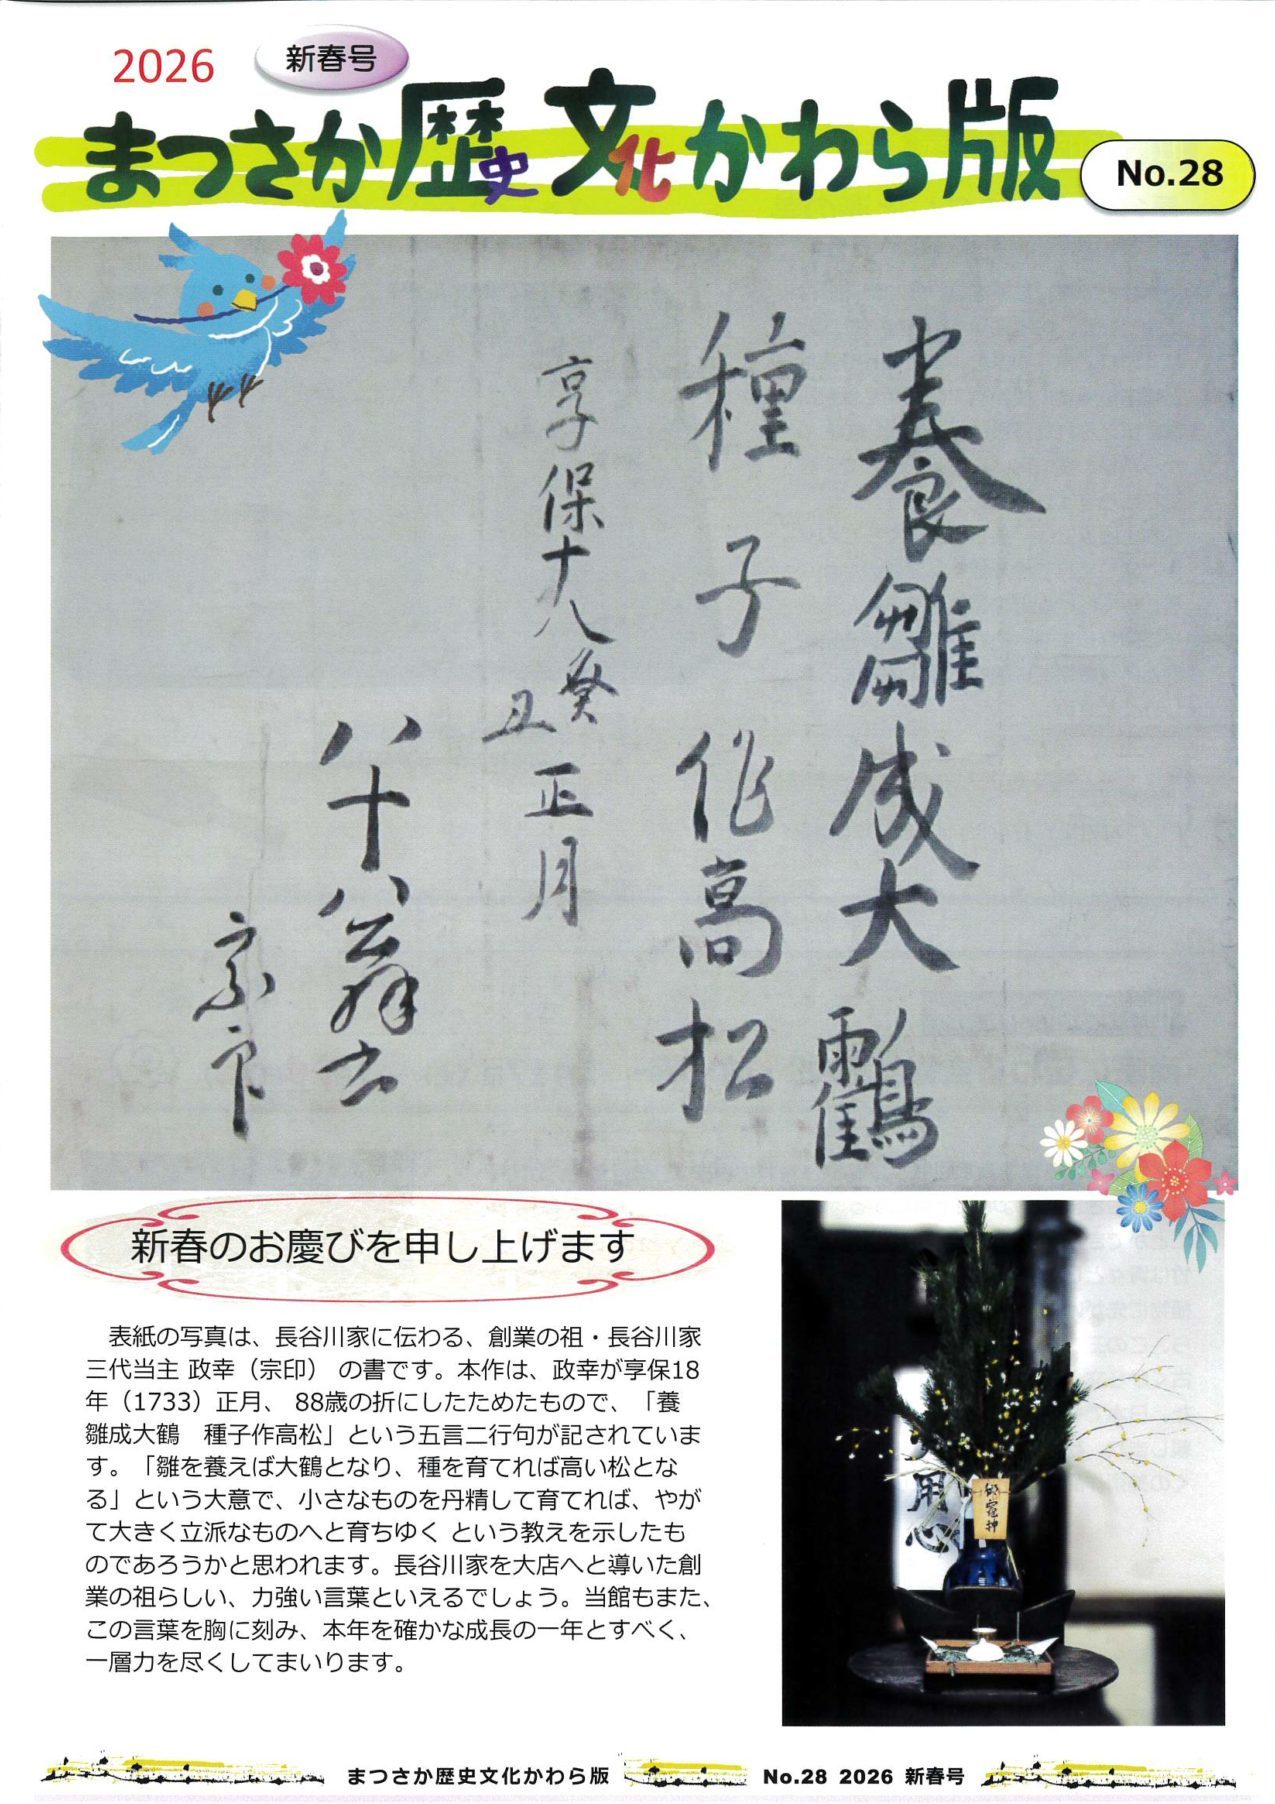 2026
新春号
まつさか歴史文化かわら版
No.28
養雛成大鶴
種子作高松
享保十八癸丑正月
八十八翁書
宗印
新春のお慶びを申し上げます
表紙の写真は、長谷川家に伝わる、創業の祖・長谷川家
三代当主 政幸（宗印） の書です。本作は、政幸が享保18
年（1733）正月、 88歳の折にしたためたもので、「養
雛成大鶴　種子作高松」という五言二行句が記されていま
す。「雛を養えば大鶴となり、種を育てれば高い松とな
る」という大意で、小さなものを丹精して育てれば、やが
て大きく立派なものへと育ちゆく という教えを示したも
のであろうかと思われます。長谷川家を大店へと導いた創
業の祖らしい、力強い言葉といえるでしょう。当館もまた、
この言葉を胸に刻み、本年を確かな成長の一年とすべく、
一層力を尽くしてまいります。
用心
まつさか歴史文化かわら版
No.28 2026 新春号